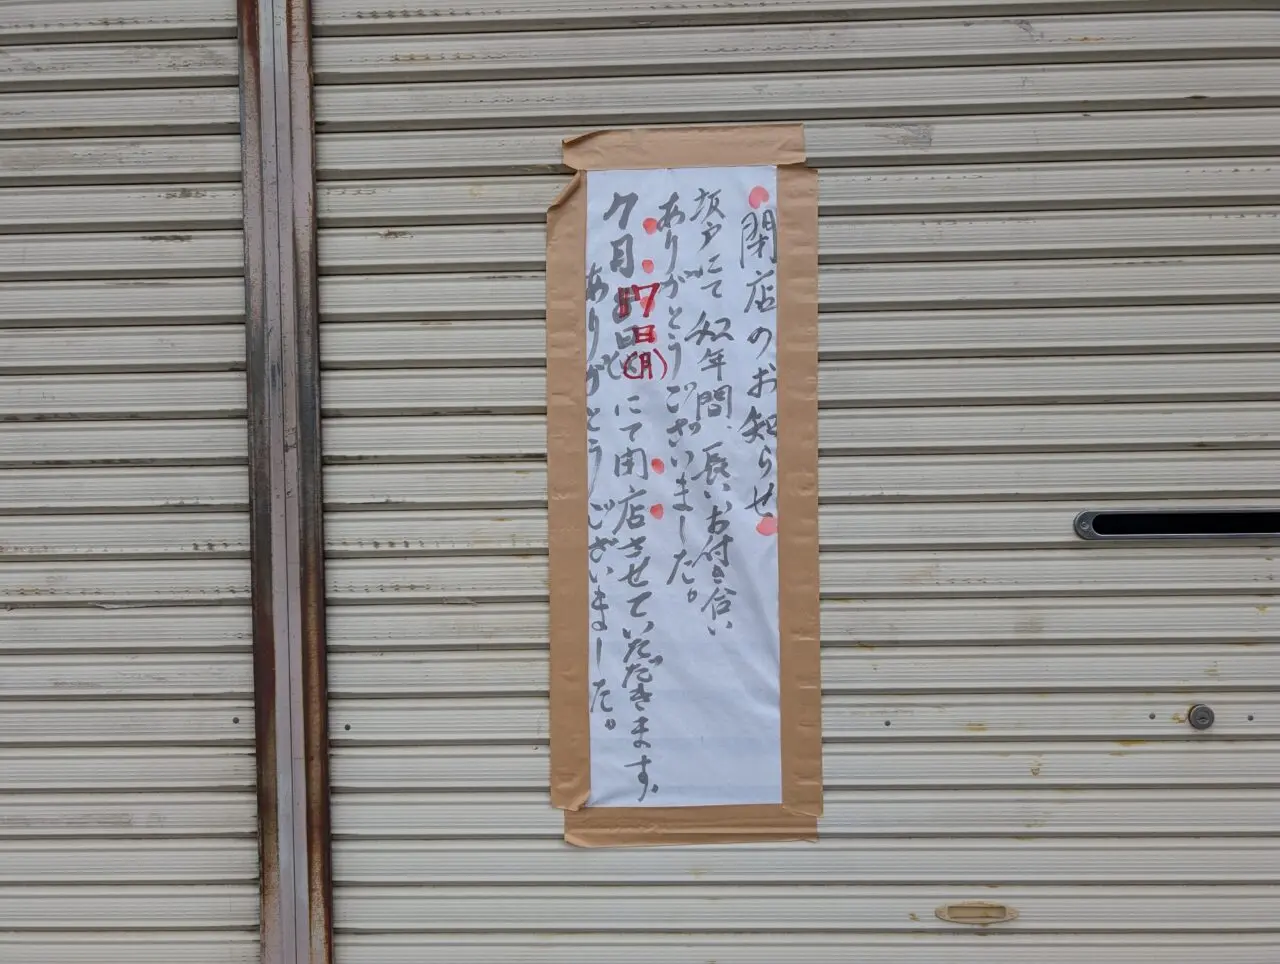 閉店のお知らせ
坂戸にて 年間、長いお付き合い
ありがとうございました。
7月17日(月)にて閉店させていただきます。
ありがとうございました。